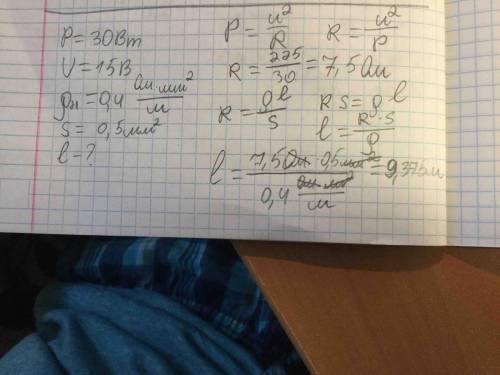 P = 30Вт
U = 15В
ρн = 0,4 Ом·мм²/м
S = 0,5мм²
l - ?
P = u²/R R = u²/P
R = 225/30 = 7,5Ом
R = ρl/S RS = ρl
l = R·S/ρ
l = 7,5Ом · 0,5мм²/0,4 Ом·мм²/м = 9,375м